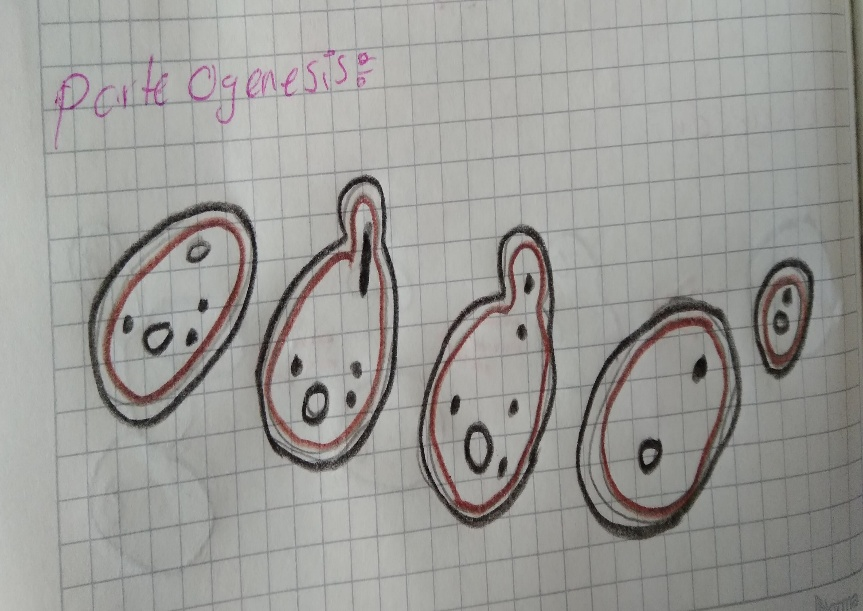 Parte Ogenesis: